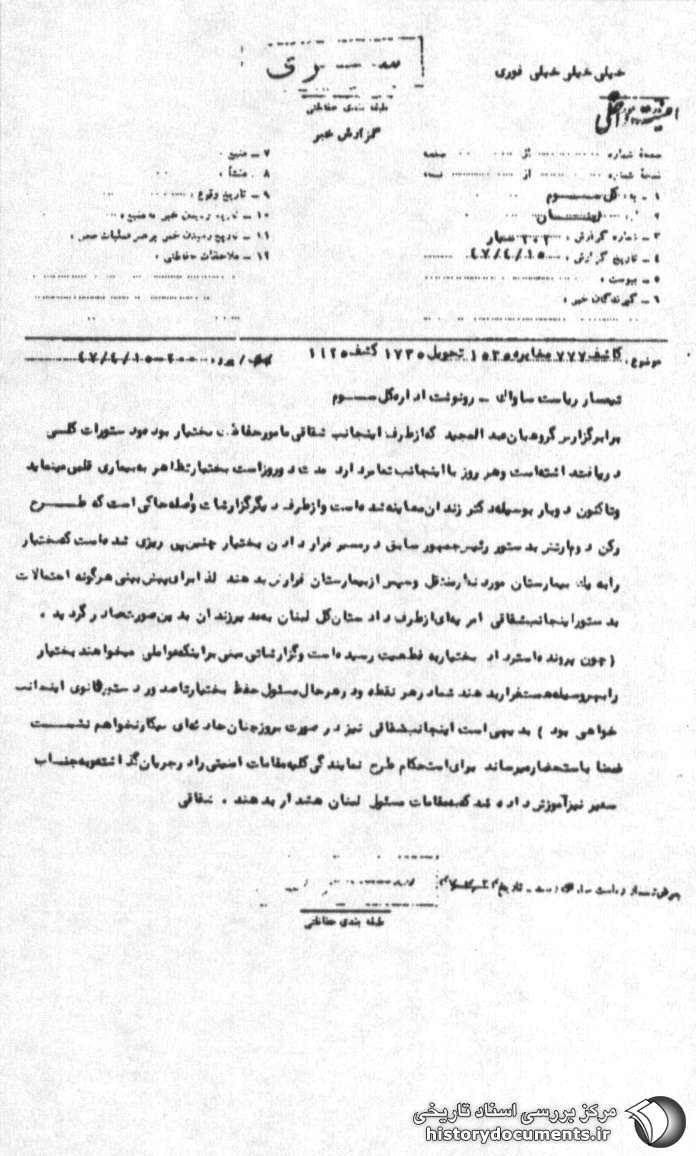 سری
طبقه بندی حفاظتی
گزارش خبر
خیلی خیلی خیلی فوری
صفحهٔ شماره از صفحه
نسخهٔ شماره از نسخه
۱ - به : کل سوم
۲ - لبنان
۳ - شماره گزارش : ۲۰۲ سیار
۴ - تاریخ گزارش : ۴۷/۴/۱۵
۵ - پیوست :
۶ - گیرندگان خبر :
۷ - منبع :
۸ - منشأ :
۹ - تاریخ وقوع :
۱۰ - تاریخ رسیدن خبر به منبع :
۱۱ - تاریخ رسیدن خبر به رهبر عملیات
۱۲ - ملاحظات حفاظتی :
موضوع : کاشف ۷۷۷ مخابره ۱۵۳۵ تحویل ۱۷۳۵ کشف ۱۱۲۵ ۴۷/۴/۱۵-۲۰۰
تیمسار ریاست ساواک - رونوشت اداره کل سوم
برابر گزارش گروهبان عبد المجید که از طرف اینجانب شقاقی مامور حفاظت بختیار بوده و دستورات کلی
دریافت داشته است و هر روز با اینجانب تماس دارد مدت دو روز است بختیار تظاهر به بیماری قلبی مینماید
و تا کنون دو بار بوسیله دکتر زندان معاینه شده است و از طرف دیگر گزارشات واصله حاکی است که طرح
رکن دو ارتش بدستور رئیس جمهور سابق در مسیر فرار دادن بختیار چنین پی ریزی شده است که بختیار
را به یک بیمارستان مورد نظر منتقل و سپس از بیمارستان فرارش بدهند لذا برای پیش بینی هرگونه احتمالات
بدستور اینجانب شقاقی امریه ای از طرف دادستان کل لبنان به مدیر زندان بدین صورت صادر گردید .
( چون پرونده استرداد بختیار به قطعیت رسیده است و گزارشاتی مبنی بر اینکه عواملی میخواهند بختیار
را بهر وسیله هست فرار بدهند شما در هر نقطه و در هر حال مسئول حفظ بختیار تا صدور دستور ثانوی اینجانب
خواهی بود ) بدیهی است اینجانب شقاقی نیز در صورت بروز چنان حادثه ای بیکار نخواهم نشست
ضمنا باستحضار میرساند برای استحکام طرح نمایندگی کلیه مقامات امنیتی را در جریان گذاشته و به جناب
سفیر نیز آموزش داده شد که به مقامات مسئول لبنان هشدار بدهند . شقاقی
طبقه بندی حفاظتی
مرکز بررسی اسناد تاریخی
historydocuments.ir